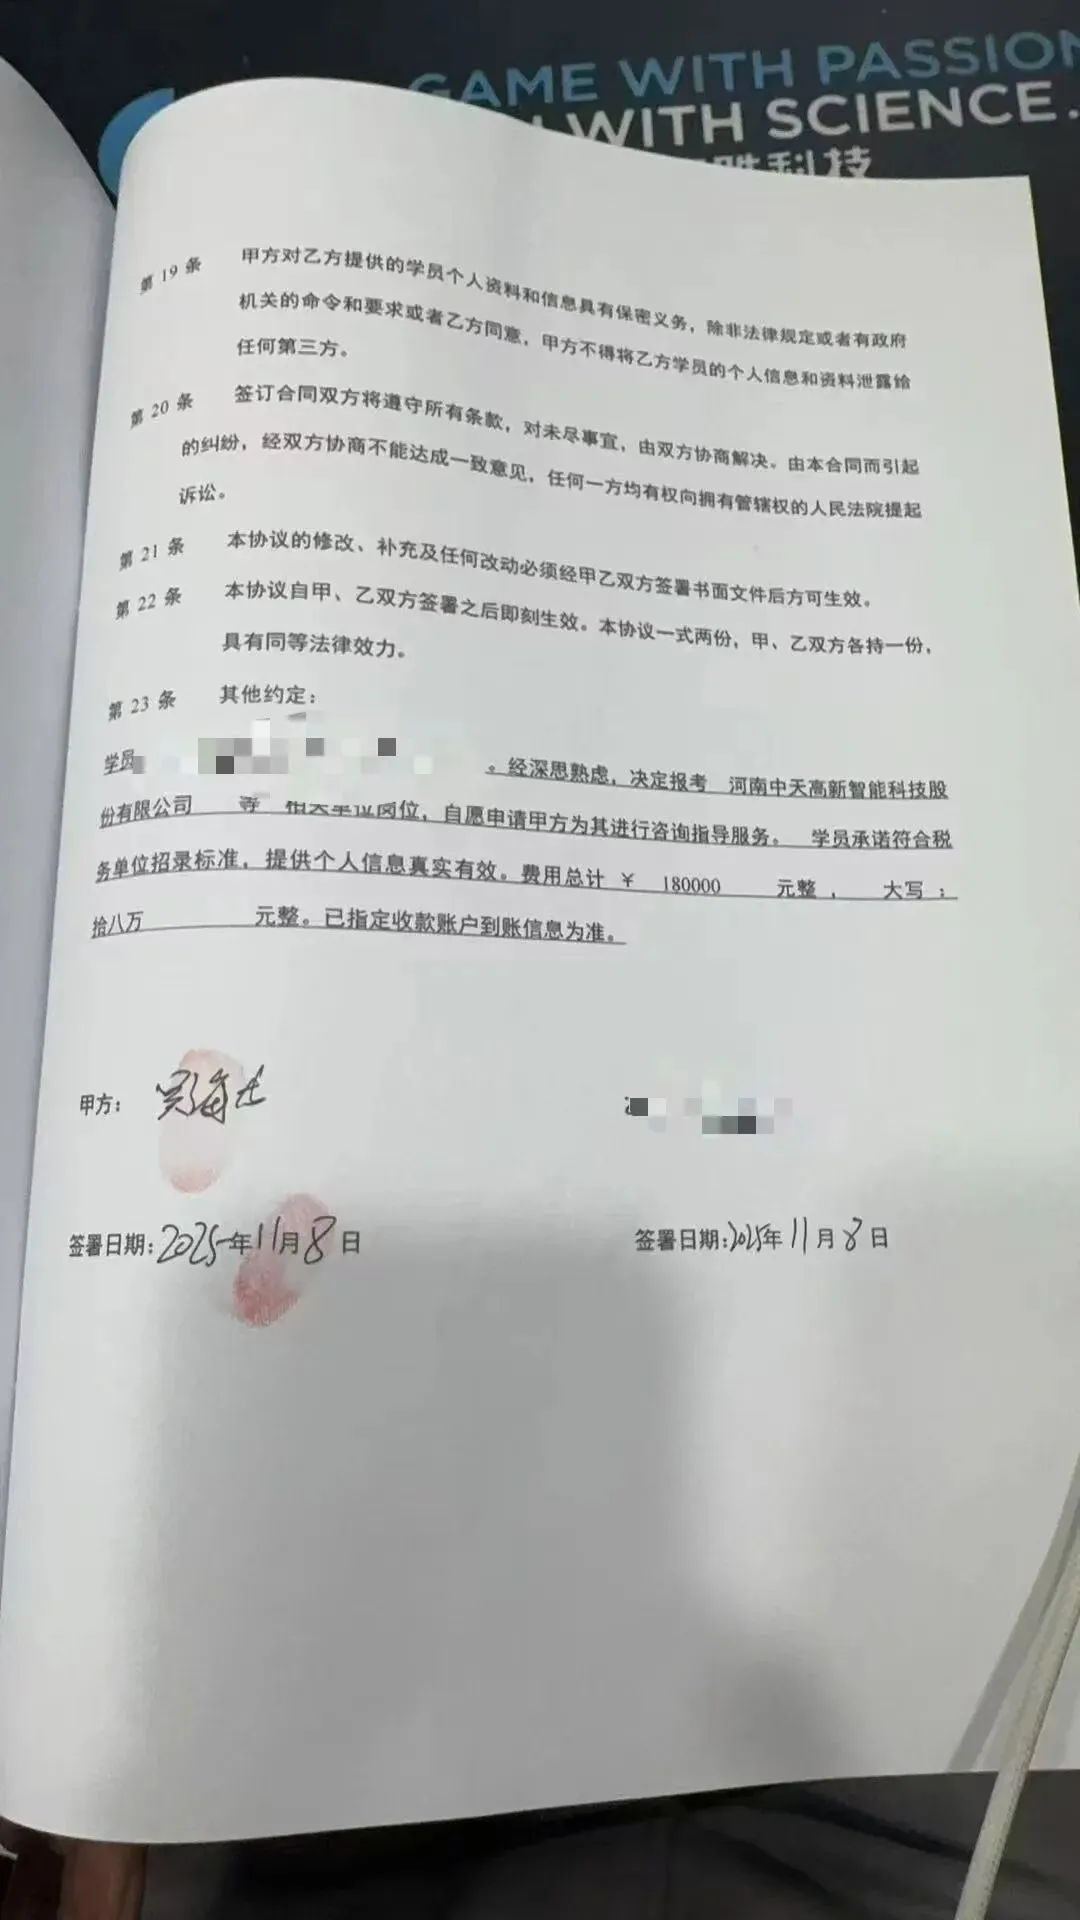 GAME WITH PASSION
WITH SCIENCE.
科技
第 19 条 甲方对乙方提供的学员个人资料和信息具有保密义务，除非法律规定或者有政府
机关的命令和要求或者乙方同意，甲方不得将乙方学员的个人信息和资料泄露给
任何第三方。
第 20 条 签订合同双方将遵守所有条款，对未尽事宜，由双方协商解决。由本合同而引起
的纠纷，经双方协商不能达成一致意见，任何一方均有权向拥有管辖权的人民法院提起
诉讼。
第 21 条 本协议的修改、补充及任何改动必须经甲乙双方签署书面文件后方可生效。
第 22 条 本协议自甲、乙双方签署之后即刻生效。本协议一式两份，甲、乙双方各持一份，
具有同等法律效力。
第 23 条 其他约定：
学员 。经深思熟虑，决定报考 河南中天高新智能科技股
份有限公司 等 相关单位岗位，自愿申请甲方为其进行咨询指导服务。 学员承诺符合税
务单位招录标准，提供个人信息真实有效。费用总计 ￥ 180000 元整 ， 大写：
拾八万 元整。已指定收款账户到账信息为准。
甲方：
签署日期：2025年11月8日 签署日期：2025年11月8日